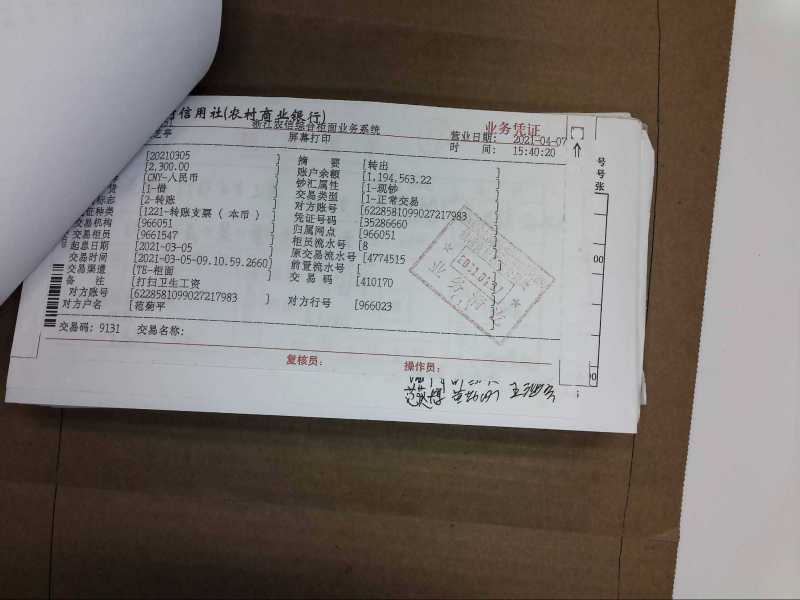 信用社(农村商业银行)
业务凭证
浙江农信综合柜面业务系统
屏幕打印
营业日期: 2021-04-07
时 间: 15:40:20
[20210305 ] 摘 要 [转出 ]
[2,300.00 ] 账户余额 [1,194,563.22 ]
[CNY-人民币 ] 钞汇属性 [1-现钞 ]
[1-借 ] 交易类型 [1-正常交易 ]
标志 [2-转账 ] 对方账号 [6228581099027217983 ]
证种类 [1221-转账支票(本币) ] 凭证号码 [35286660 ]
交易机构 [966051 ] 归属网点 [966051 ]
交易柜员 [9661547 ] 柜员流水号 [8 ]
起息日期 [2021-03-05 ] 原交易流水号 [4774515 ]
交易时间 [2021-03-05-09.10.59.2660] 前置流水号 [ ]
交易渠道 [TB-柜面 ] 交 易 码 [410170 ]
备 注 [打扫卫生工资 ]
对方账号 [6228581099027217983 ] 对方行号 [966023 ]
对方户名 [范菊平 ]
交易码: 9131 交易名称:
复核员: 操作员:
号
号
张
00
00